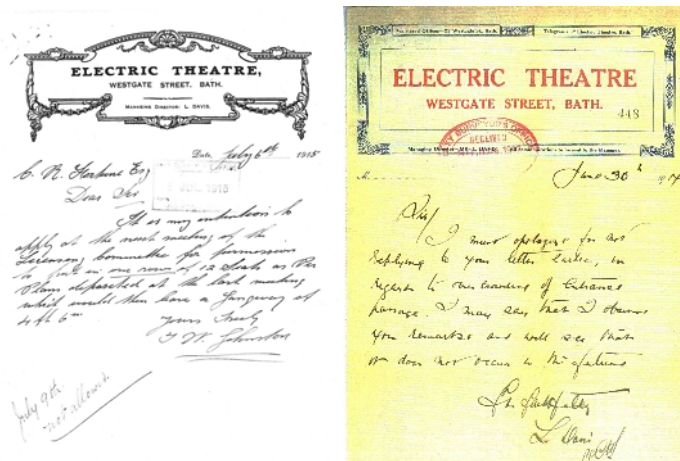 ELECTRIC THEATRE,
WESTGATE STREET, BATH.
MANAGING DIRECTOR: L. DAVIS.
Date July 6th 1915
C. R. Fortune Esq
Dear Sir
It is my intention to
apply at the next meeting of the
Licensing Committee for permission
to put in one row of 12 Seats as Per
Plan deposited at the last meeting
which would then leave a Gangway of
4 ft 6 in
Yours Truly
F W. Johnston
July 9th
not allowed
Registered Offices—22 Westgate St, Bath.
Telegrams—Electric Theatre, Bath.
ELECTRIC THEATRE
WESTGATE STREET, BATH.
448
CITY SURVEYOR'S OFFICE
RECEIVED
Managing Director—MR. L. DAVIS.
June 30th 1914
Sir/
I must apologise for not
replying to your letter earlier, in
regards to our boarding of Entrance
passage. I may say that I observe
your remarks and will see that
it does not occur in the future
Yrs faithfully
L. Davis